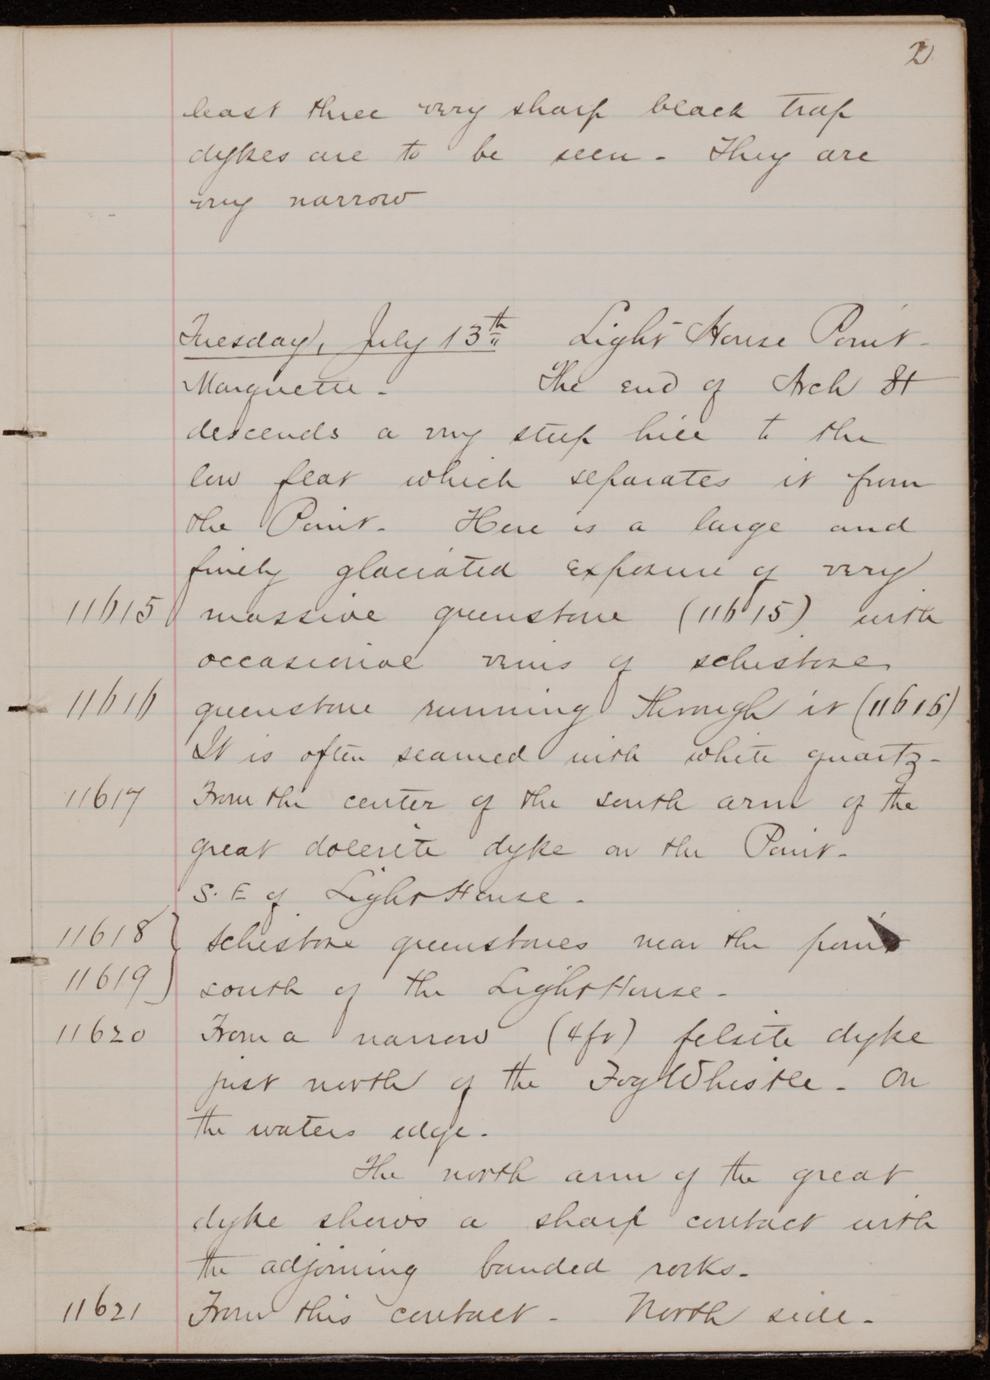 2
least three very sharp black trap
dykes are to be seen - They are
very narrow
Tuesday, July 13th Light House Point -
Marquette - The end of Arch St
descends a very steep hill to the
low flat which separates it from
the Point - Here is a large and
finely glaciated exposure of very
11615 massive greenstone (11615) with
occasional veins of schistose
11616 greenstone running through it (11616)
It is often seamed with white quartz -
11617 From the center of the south arm of the
great dolerite dyke on the Point -
S. E of Light House -
11618 } schistose greenstones near the point
11619 south of the Light House -
11620 From a narrow (4ft) felsite dyke
just north of the Fog Whistle - On
the waters edge -
The north arm of the great
dyke shows a sharp contact with
the adjoining banded rocks -
11621 From this contact - North side -